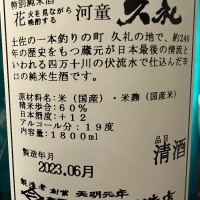 特別純米酒
花火を見ながら晩酌する 河童 久礼
土佐の一本釣りの町 久礼の地で、約240
年の歴史をもつ蔵元が日本最後の清流と
いわれる四万十川の伏流水で仕込んだ辛
口の純米生酒です。
原材料名：米（国産）・米麹（国産米）
精米歩合：60％
日本酒度：＋12
アルコール分：19度
内容量：1800ml
製造年月
2023.06月
品目
清酒
製造者 創業 天明元年